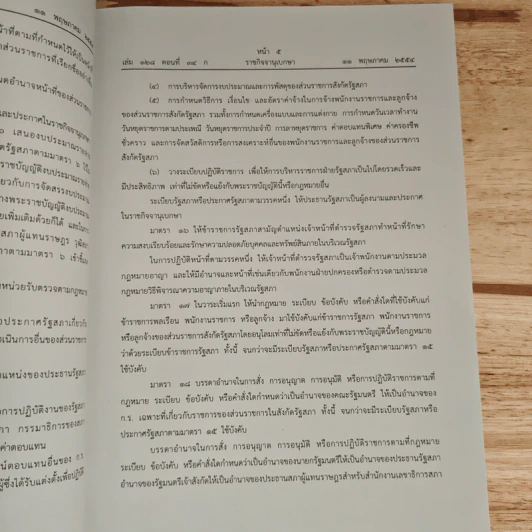 ๑๑ พฤษภาคม
หน้า ๕
เล่ม ๑๒๘ ตอนที่ ๓๔ ก ราชกิจจานุเบกษา ๑๑ พฤษภาคม ๒๕๕๔
(๔) การบริหารจัดการงบประมาณและการพัสดุของส่วนราชการสังกัดรัฐสภา
(๕) การกำหนดวิธีการ เงื่อนไข และอัตราค่าจ้างในการจ้างพนักงานราชการและลูกจ้าง
ของส่วนราชการสังกัดรัฐสภา รวมทั้งการกำหนดเครื่องแบบและการแต่งกาย การกำหนดวันเวลาทำงาน
วันหยุดราชการตามประเพณี วันหยุดราชการประจำปี การลาหยุดราชการ ค่าตอบแทนพิเศษ ค่าครองชีพ
ชั่วคราว และการจัดสวัสดิการหรือการสงเคราะห์อื่นของพนักงานราชการและลูกจ้างของส่วนราชการ
สังกัดรัฐสภา
(๖) วางระเบียบปฏิบัติราชการ เพื่อให้การบริหารราชการฝ่ายรัฐสภาเป็นไปโดยรวดเร็วและ
มีประสิทธิภาพ เท่าที่ไม่ขัดหรือแย้งกับพระราชบัญญัตินี้หรือกฎหมายอื่น
ระเบียบรัฐสภาหรือประกาศรัฐสภาตามวรรคหนึ่ง ให้ประธานรัฐสภาเป็นผู้ลงนามและประกาศ
ในราชกิจจานุเบกษา
มาตรา ๑๖ ให้ข้าราชการรัฐสภาสามัญตำแหน่งเจ้าหน้าที่ตำรวจรัฐสภาทำหน้าที่รักษา
ความสงบเรียบร้อยและรักษาความปลอดภัยบุคคลและทรัพย์สินภายในบริเวณรัฐสภา
ในการปฏิบัติหน้าที่ตามวรรคหนึ่ง ให้เจ้าหน้าที่ตำรวจรัฐสภาเป็นเจ้าพนักงานตามประมวล
กฎหมายอาญา และให้มีอำนาจและหน้าที่เช่นเดียวกับพนักงานฝ่ายปกครองหรือตำรวจตามประมวล
กฎหมายวิธีพิจารณาความอาญาภายในบริเวณรัฐสภา
มาตรา ๑๗ ในวาระเริ่มแรก ให้นำกฎหมาย ระเบียบ ข้อบังคับ หรือคำสั่งใดที่ใช้บังคับแก่
ข้าราชการพลเรือน พนักงานราชการ หรือลูกจ้าง มาใช้บังคับแก่ข้าราชการรัฐสภา พนักงานราชการ
หรือลูกจ้างของส่วนราชการสังกัดรัฐสภาโดยอนุโลมเท่าที่ไม่ขัดหรือแย้งกับพระราชบัญญัตินี้หรือกฎหมาย
ว่าด้วยระเบียบข้าราชการรัฐสภา ทั้งนี้ จนกว่าจะมีระเบียบรัฐสภาหรือประกาศรัฐสภาตามมาตรา ๑๕
ใช้บังคับ
มาตรา ๑๘ บรรดาอำนาจในการสั่ง การอนุญาต การอนุมัติ หรือการปฏิบัติราชการตามที่
กฎหมาย ระเบียบ ข้อบังคับ หรือคำสั่งใดกำหนดว่าเป็นอำนาจของคณะรัฐมนตรี ให้เป็นอำนาจของ
ก.ร. เฉพาะที่เกี่ยวกับราชการของส่วนราชการในสังกัดรัฐสภา ทั้งนี้ จนกว่าจะมีระเบียบรัฐสภาหรือ
ประกาศรัฐสภาตามมาตรา ๑๕ ใช้บังคับ
บรรดาอำนาจในการสั่ง การอนุญาต การอนุมัติ หรือการปฏิบัติราชการตามที่กฎหมาย
ระเบียบ ข้อบังคับ หรือคำสั่งใดกำหนดว่าเป็นอำนาจของนายกรัฐมนตรีให้เป็นอำนาจของประธานรัฐสภา
อำนาจของรัฐมนตรีเจ้าสังกัดให้เป็นอำนาจของประธานสภาผู้แทนราษฎรสำหรับสำนักงานเลขาธิการสภา